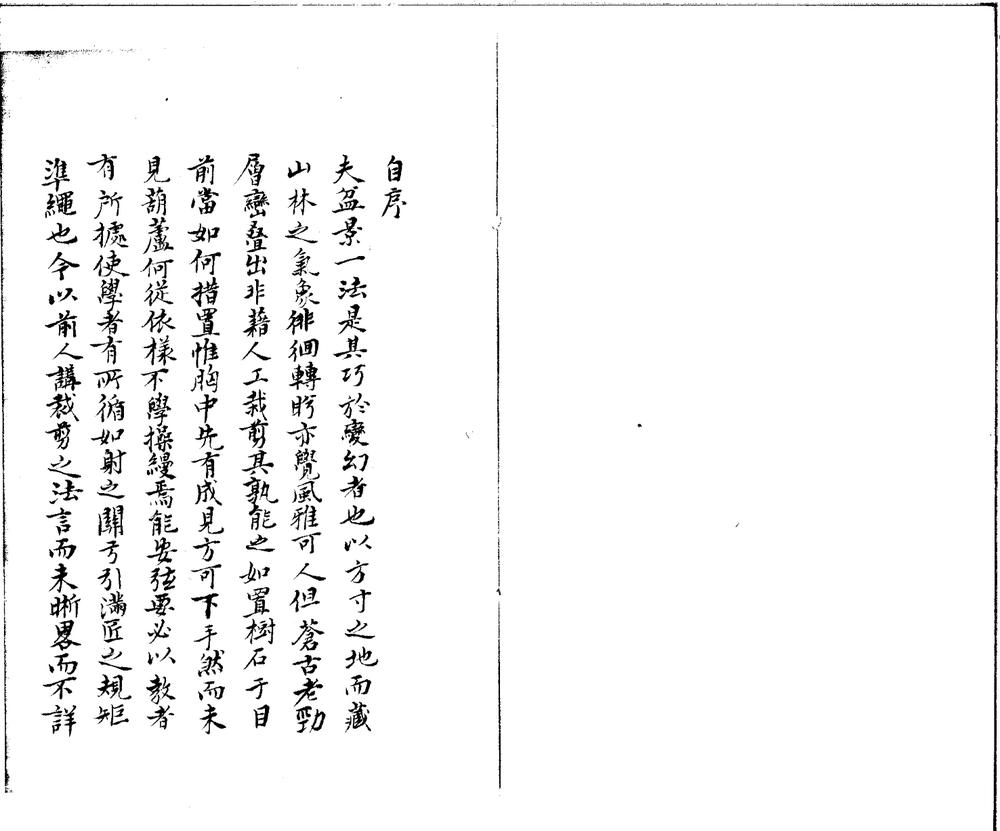 自序
夫盆景一法是具巧於變幻者也以方寸之地而藏
山林之氣象徘徊轉盻亦覺風雅可人但蒼古老勁
層巒疊出非藉人工栽剪其孰能之如置樹石于目
前當如何措置惟胸中先有成見方可下手然而未
見葫蘆何從依樣不學操縵焉能安弦要必以教者
有所據使學者有所循如射之關弓引滿匠之規矩
準繩也今以前人講裁剪之法言而未晰畧而不詳